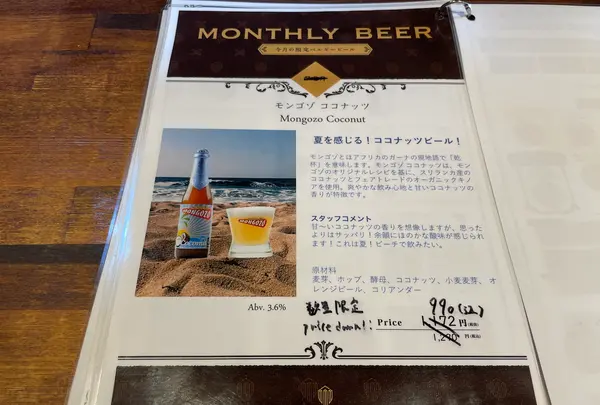 MONTHLY BEER
今月の限定ベルギービール
モンゴゾ ココナッツ
Mongozo Coconut
夏を感じる！ココナッツビール！
モンゴゾとはアフリカのガーナの現地語で「乾
杯」を意味します。モンゴゾココナッツは、モン
ゴゾのオリジナルレシピを基に、スリランカ産の
ココナッツとフェアトレードのオーガニックキノ
アを使用。爽やかな飲み心地と甘いココナッツの
香りが特徴です。
スタッフコメント
甘〜いココナッツの香りを想像しますが、思った
よりはサッパリ！余韻にほのかな酸味が感じられ
ます！これは夏！ビーチで飲みたい。
原材料
麦芽、ホップ、酵母、ココナッツ、小麦麦芽、オ
レンジピール、コリアンダー
MONGOZO
Coconut
MONGOZO
Abv. 3.6%
数量限定
price down!:
990(込)
Price 1,172 円(税抜)
1,290 円(税込)